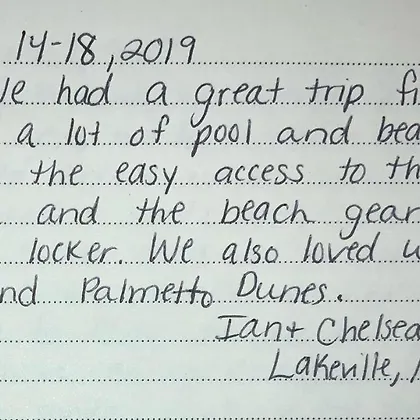 14-18, 2019
had a great trip
a lot of pool and
the easy access to
and the beach gear
locker. We also loved
Palmetto Dunes.
Ian + Chelsea
Lakeville,